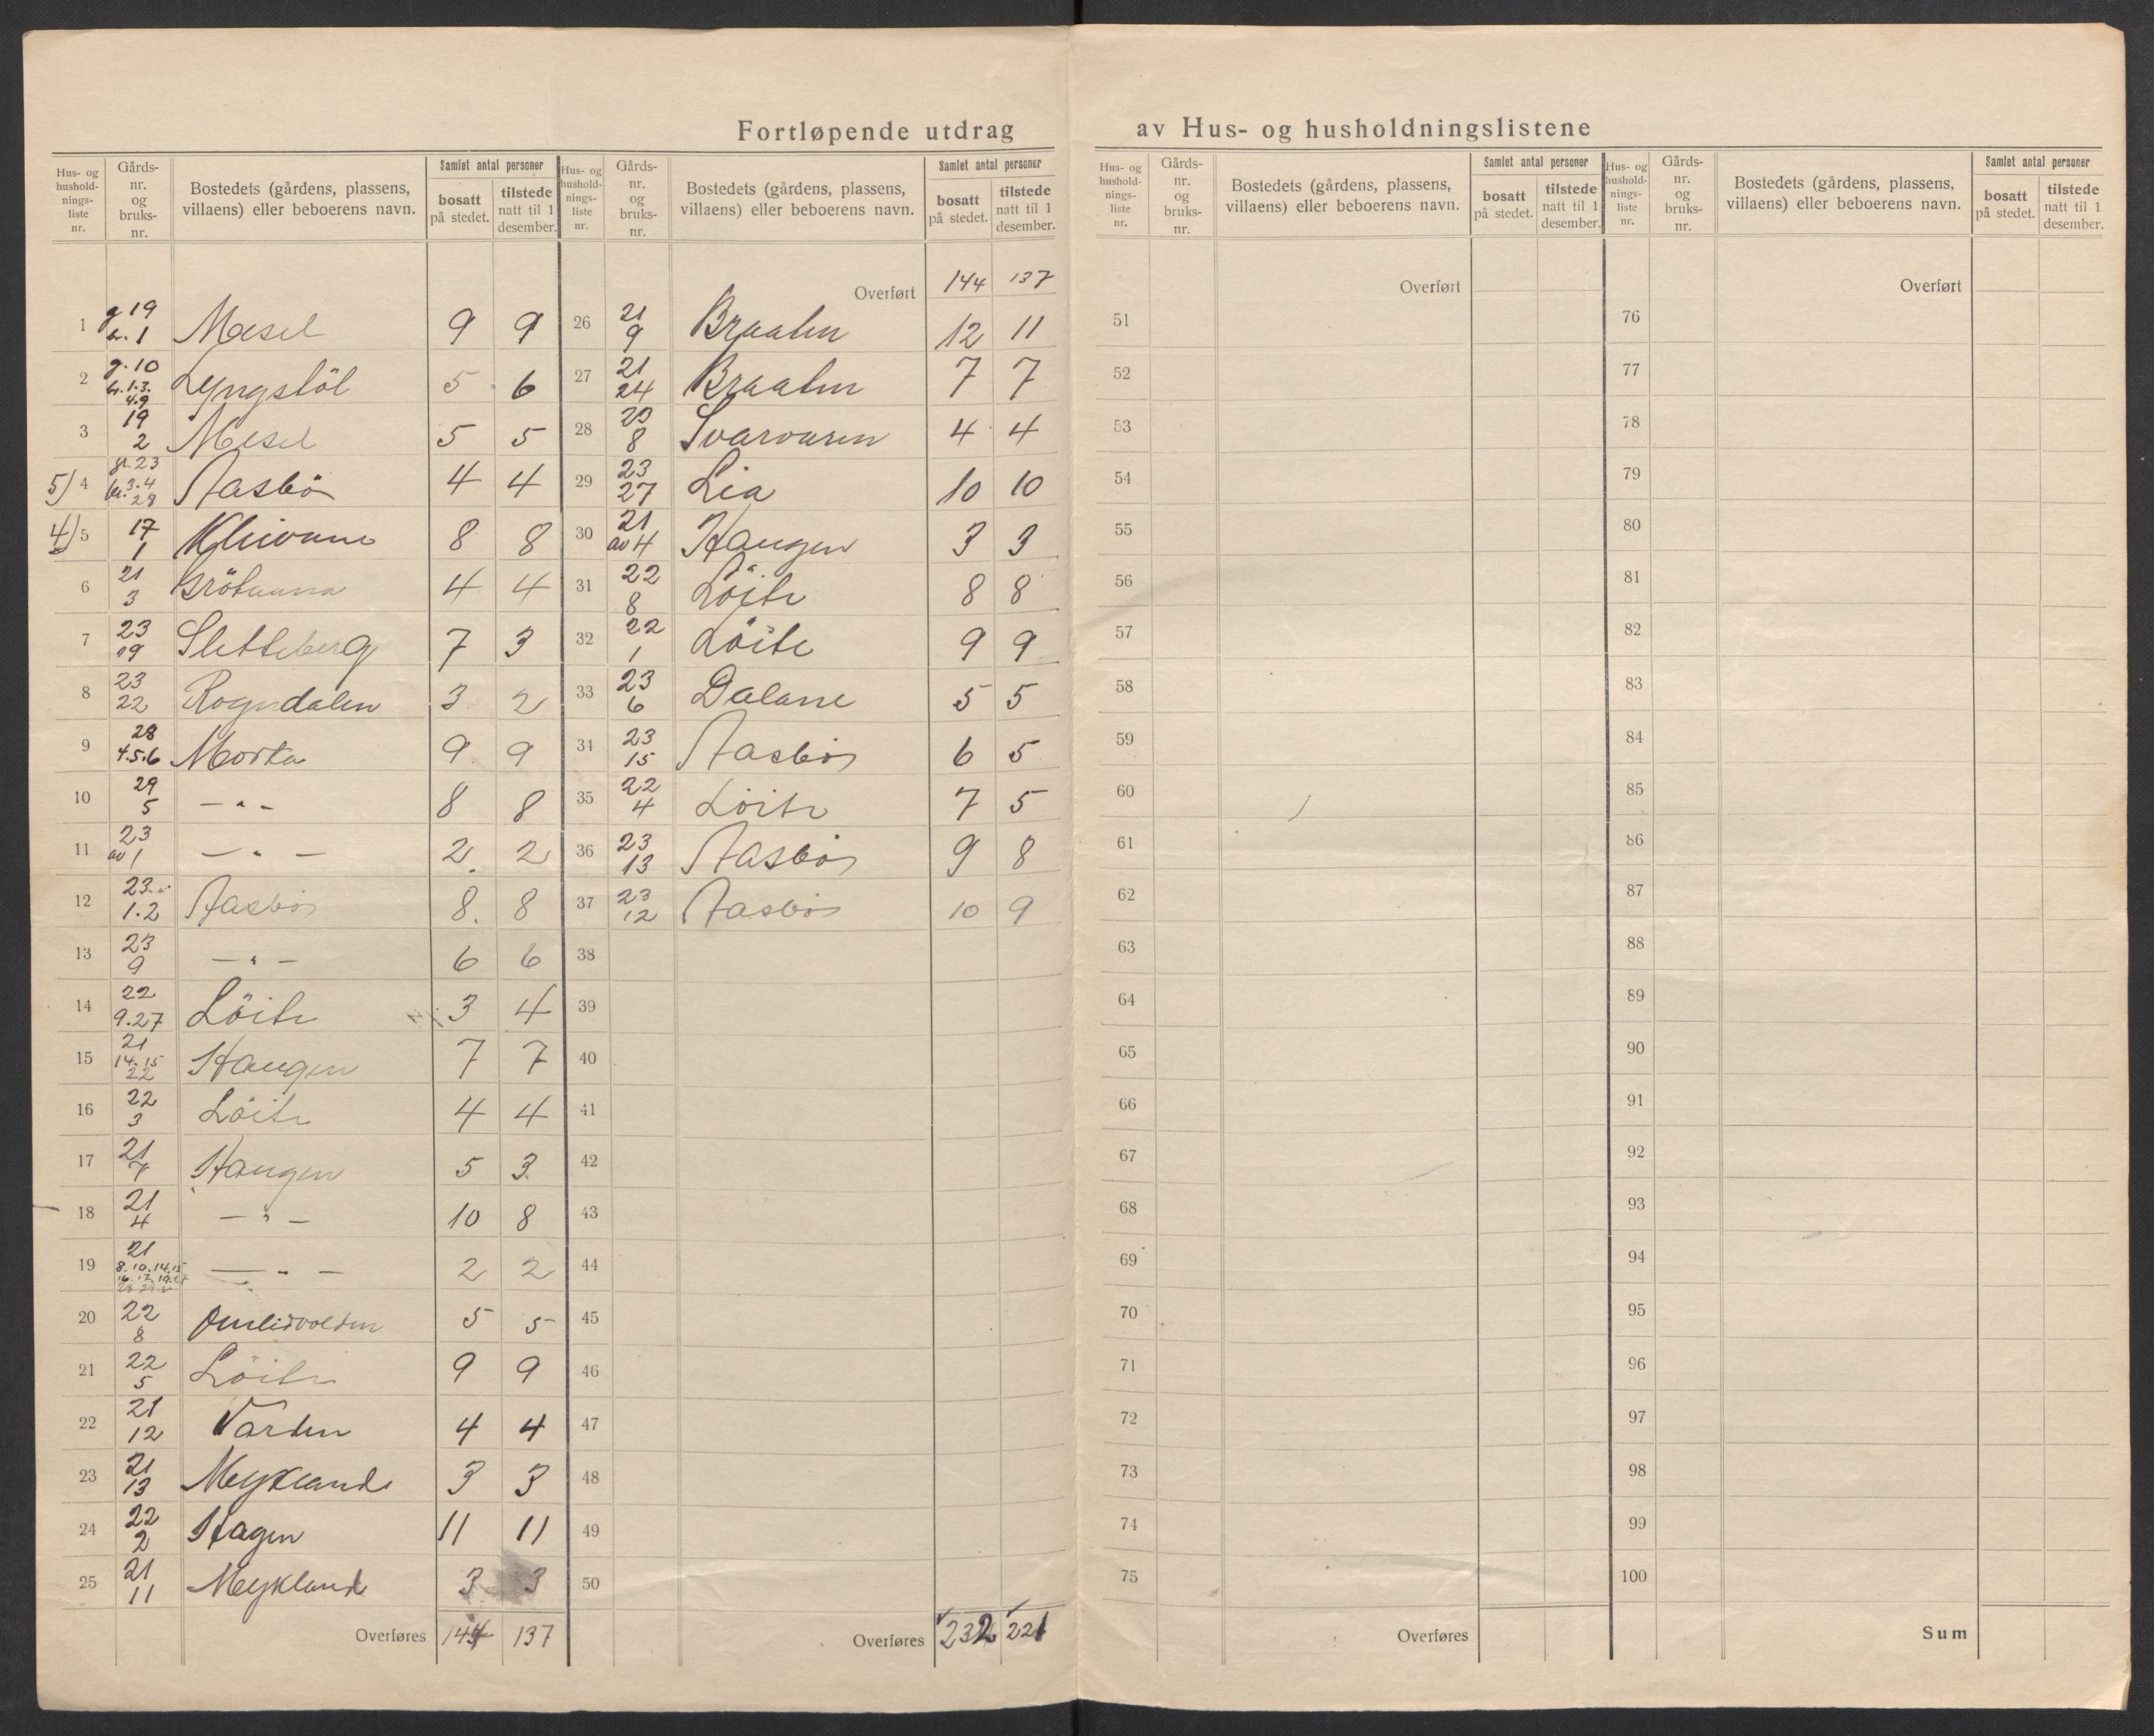 Fortløpende utdrag av Hus- og husholdningslistene
Hus- og hushold-nings-liste nr. Gårds-nr. og bruks-nr. Bostedets (gårdens, plassens, villaens) eller beboerens navn. Samlet antal personer bosatt på stedet. tilstede natt til 1 desember.
1 g 19 br. 1 Mæsel 9 9
2 g. 10 br. 1.3. 4.9 Lyngstöl 5 6
3 19 2 Mæsel 5 5
5) 4 gr. 23 br. 3.4 28 Aasbö 4 4
4) 5 17 1 Kleivane 8 8
6 21 3 4 4
7 23 19 Sletteberg 7 3
8 23 22 Rogndalen 3 2
9 28 4.5.6 Morka 9 9
10 29 5 — " — 8 8
11 23 av 1 — " — 2 2
12 23 1.2 Aasbö 8 8
13 23 9 — " — 6 6
14 22 9.27 Löite 3 4
15 21 14.15 22 Haugen 7 7
16 22 3 Löite 4 4
17 21 7 Haugen 5 3
18 21 4 — " — 10 8
19 21 8.10.14.15 — " — 2 2
20 22 8 Omlidvolden 5 5
21 22 5 Löite 9 9
22 21 12 Varden 4 4
23 21 13 Meykland 3 3
24 22 2 Hagen 11 11
25 21 11 Meykland 3 3
Overføres 144 137
Hus- og hushold-nings-liste nr. Gårds-nr. og bruks-nr. Bostedets (gårdens, plassens, villaens) eller beboerens navn. Samlet antal personer bosatt på stedet. tilstede natt til 1 desember.
Overført 144 137
26 21 9 Braaten 12 11
27 21 24 Braaten 7 7
28 23 8 Svarvaren 4 4
29 23 27 Lia 10 10
30 21 av 4 Haugen 3 3
31 22 8 Löite 8 8
32 22 1 Löite 9 9
33 23 6 Dalane 5 5
34 23 15 Aasbö 6 5
35 22 4 Löite 7 5
36 23 13 Aasbö 9 8
37 23 12 Aasbö 10 9
38
39
40
41
42
43
44
45
46
47
48
49
50
Overføres 232 221
Hus- og hushold-nings-liste nr. Gårds-nr. og bruks-nr. Bostedets (gårdens, plassens, villaens) eller beboerens navn. Samlet antal personer bosatt på stedet. tilstede natt til 1 desember.
Overført
51
52
53
54
55
56
57
58
59
60
61
62
63
64
65
66
67
68
69
70
71
72
73
74
75
Overføres
Hus- og hushold-nings-liste nr. Gårds-nr. og bruks-nr. Bostedets (gårdens, plassens, villaens) eller beboerens navn. Samlet antal personer bosatt på stedet. tilstede natt til 1 desember.
Overført
76
77
78
79
80
81
82
83
84
85
86
87
88
89
90
91
92
93
94
95
96
97
98
99
100
Sum